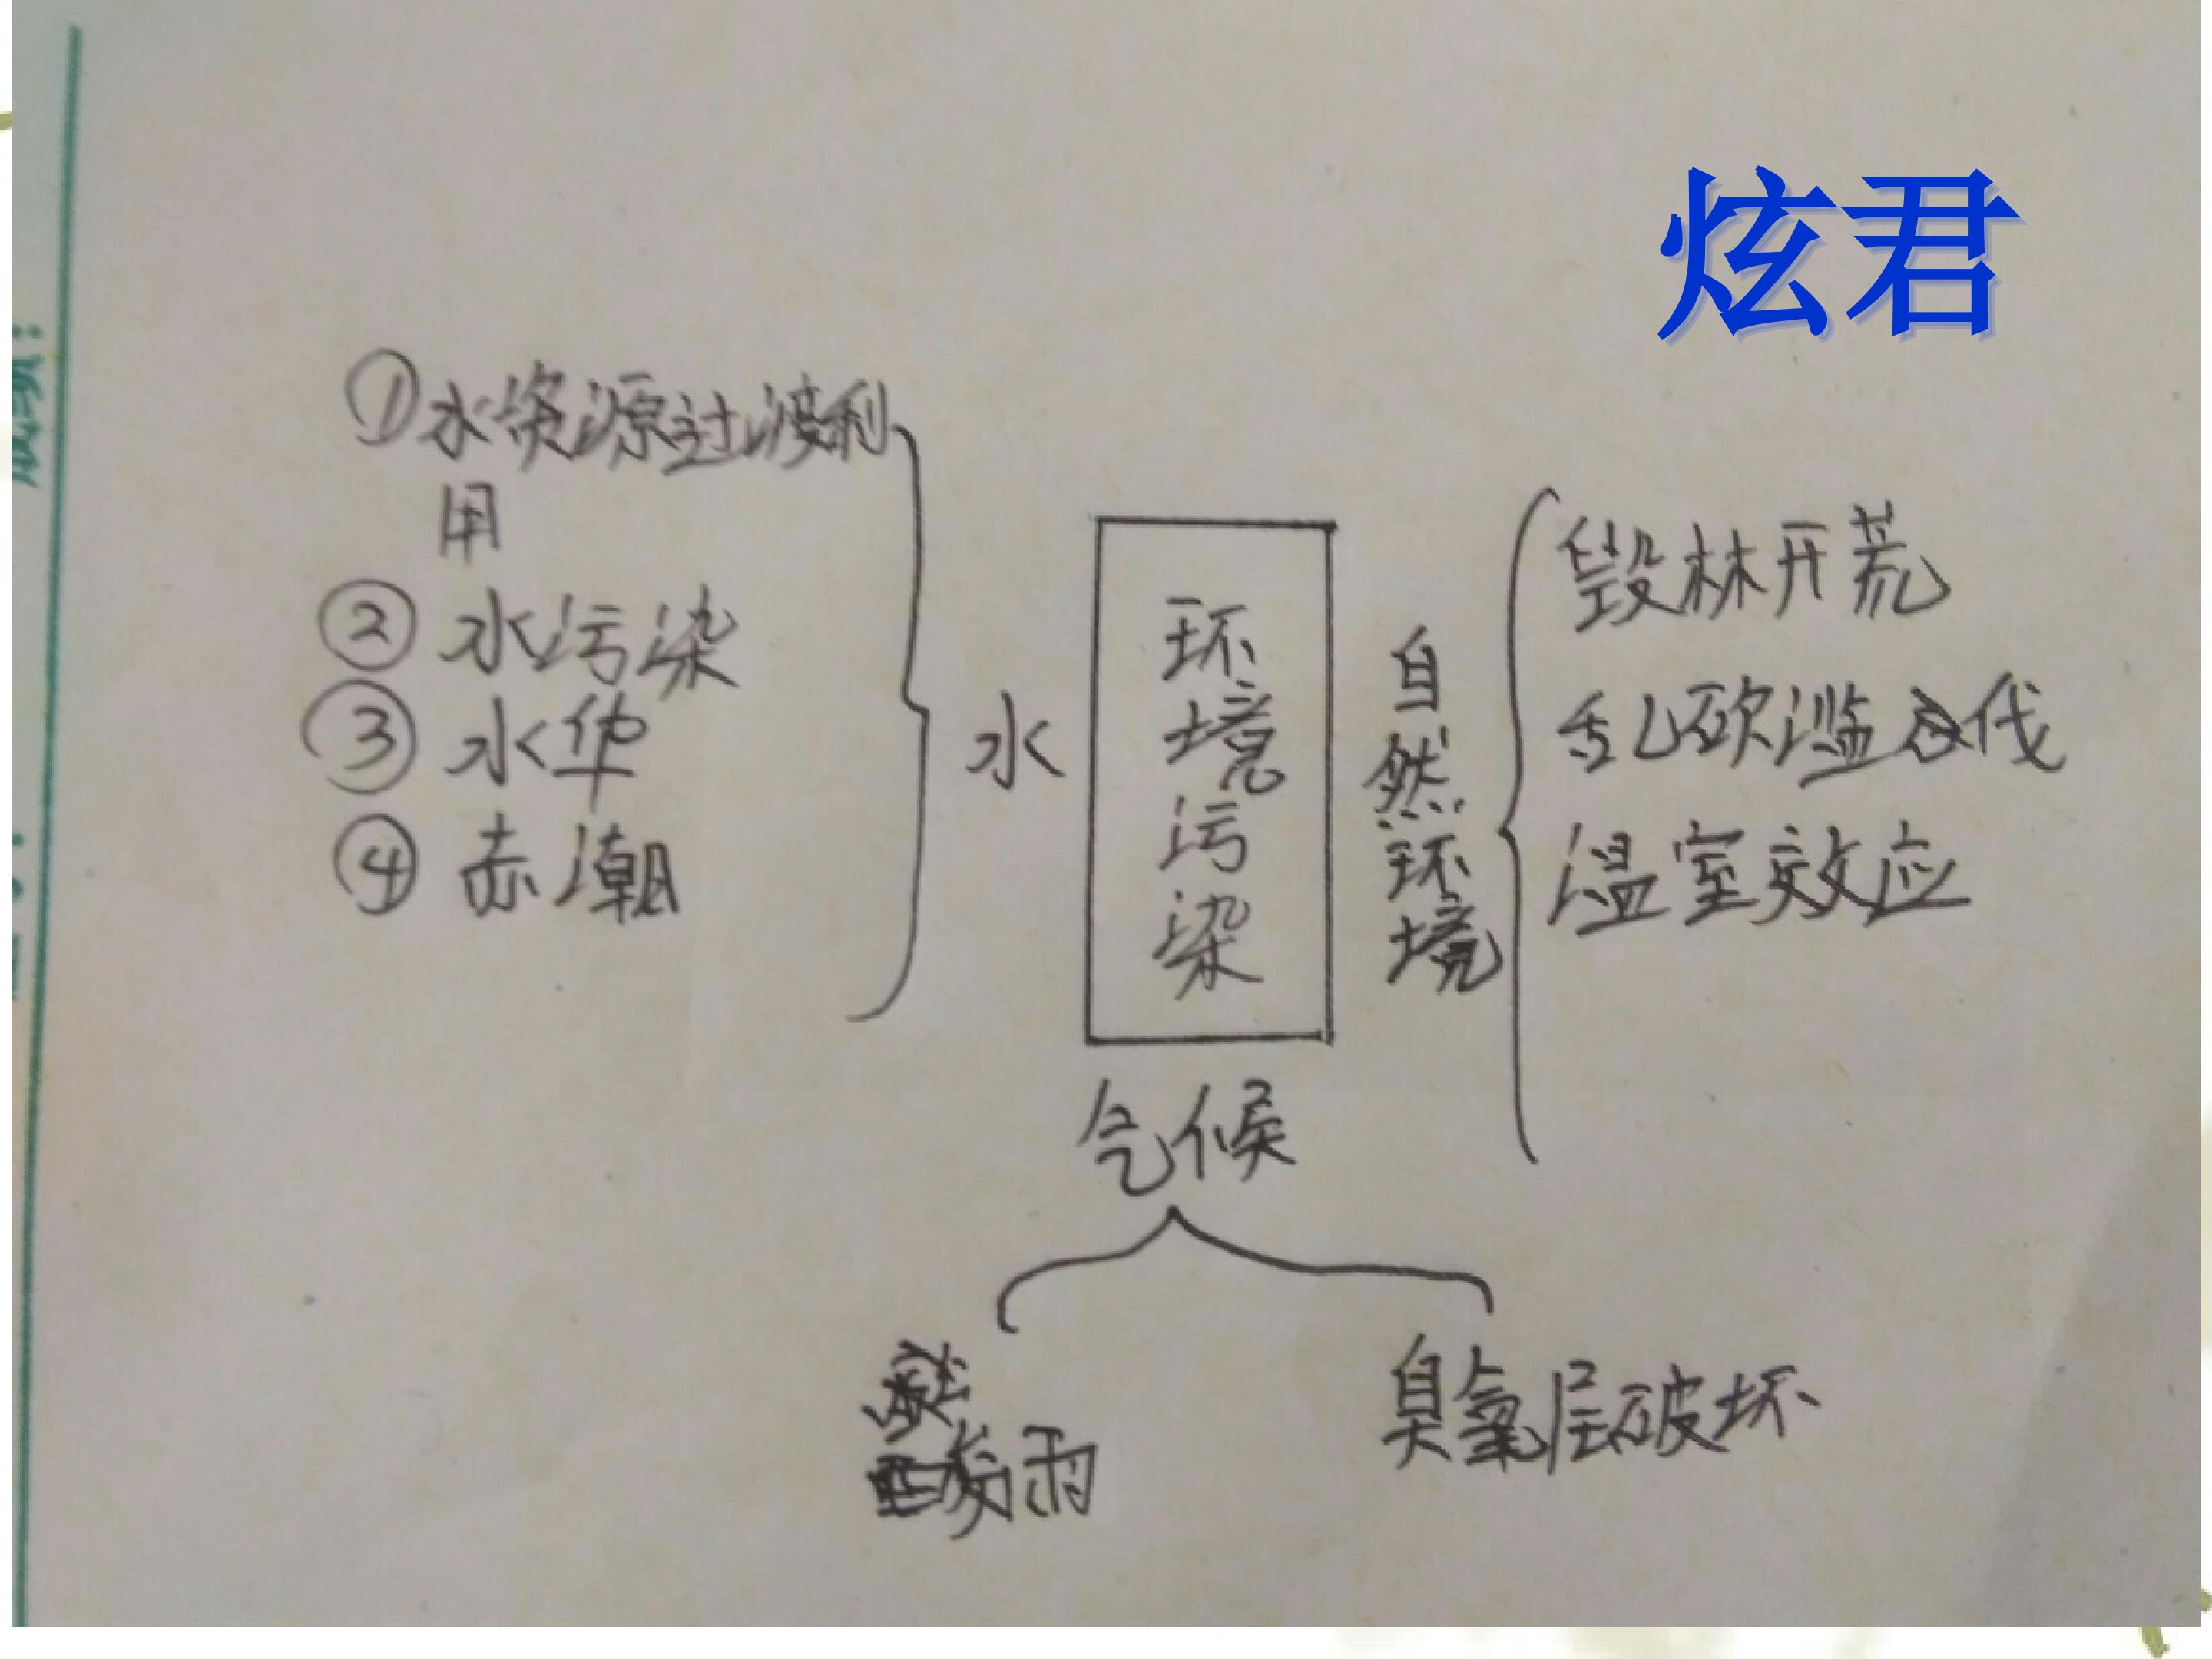 炫君
①水资源过渡利
用
②水污染
③水华
④赤潮
水
环境污染
自然环境
毁林开荒
乱砍滥伐
温室效应
气候
酸雨
臭氧层破坏